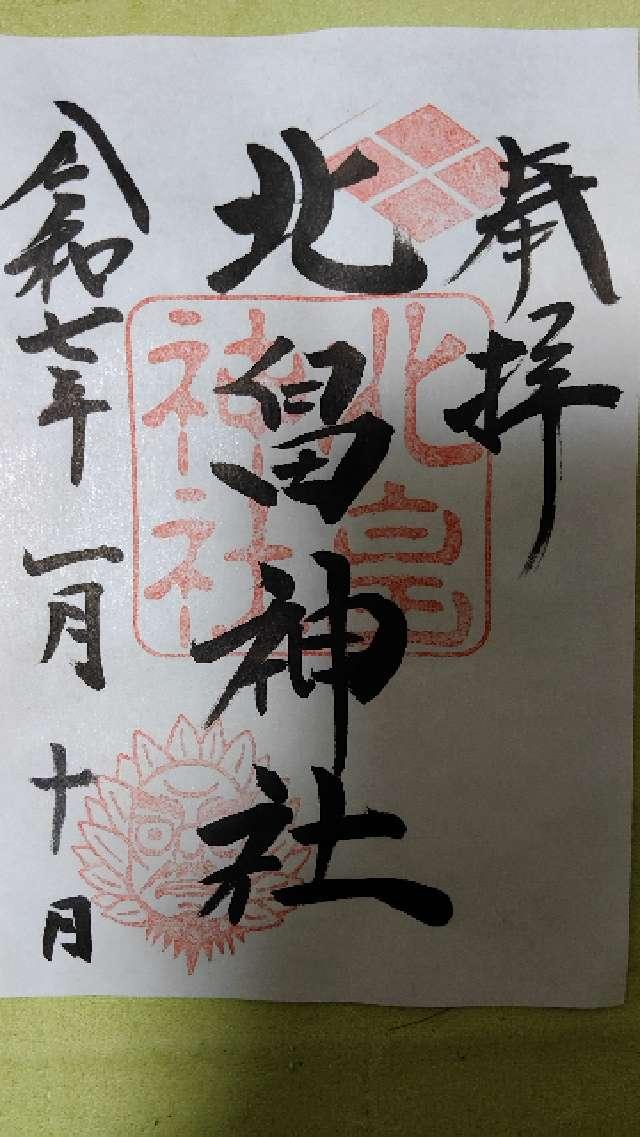 奉拝
北畠神社
北畠
神社
令和七年一月十日